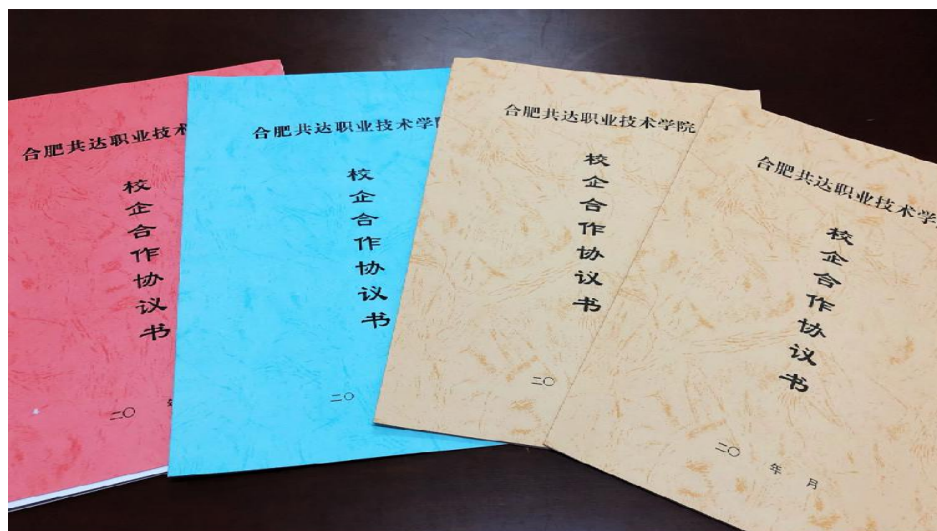 合肥共达职业技术
校企合作协议书
二〇
合肥共达职业技术学
校企合作协议书
二〇
合肥共达职业技术学院
校企合作协议书
二〇
合肥共达职业技术学
校企合作协议书
二〇 年 月